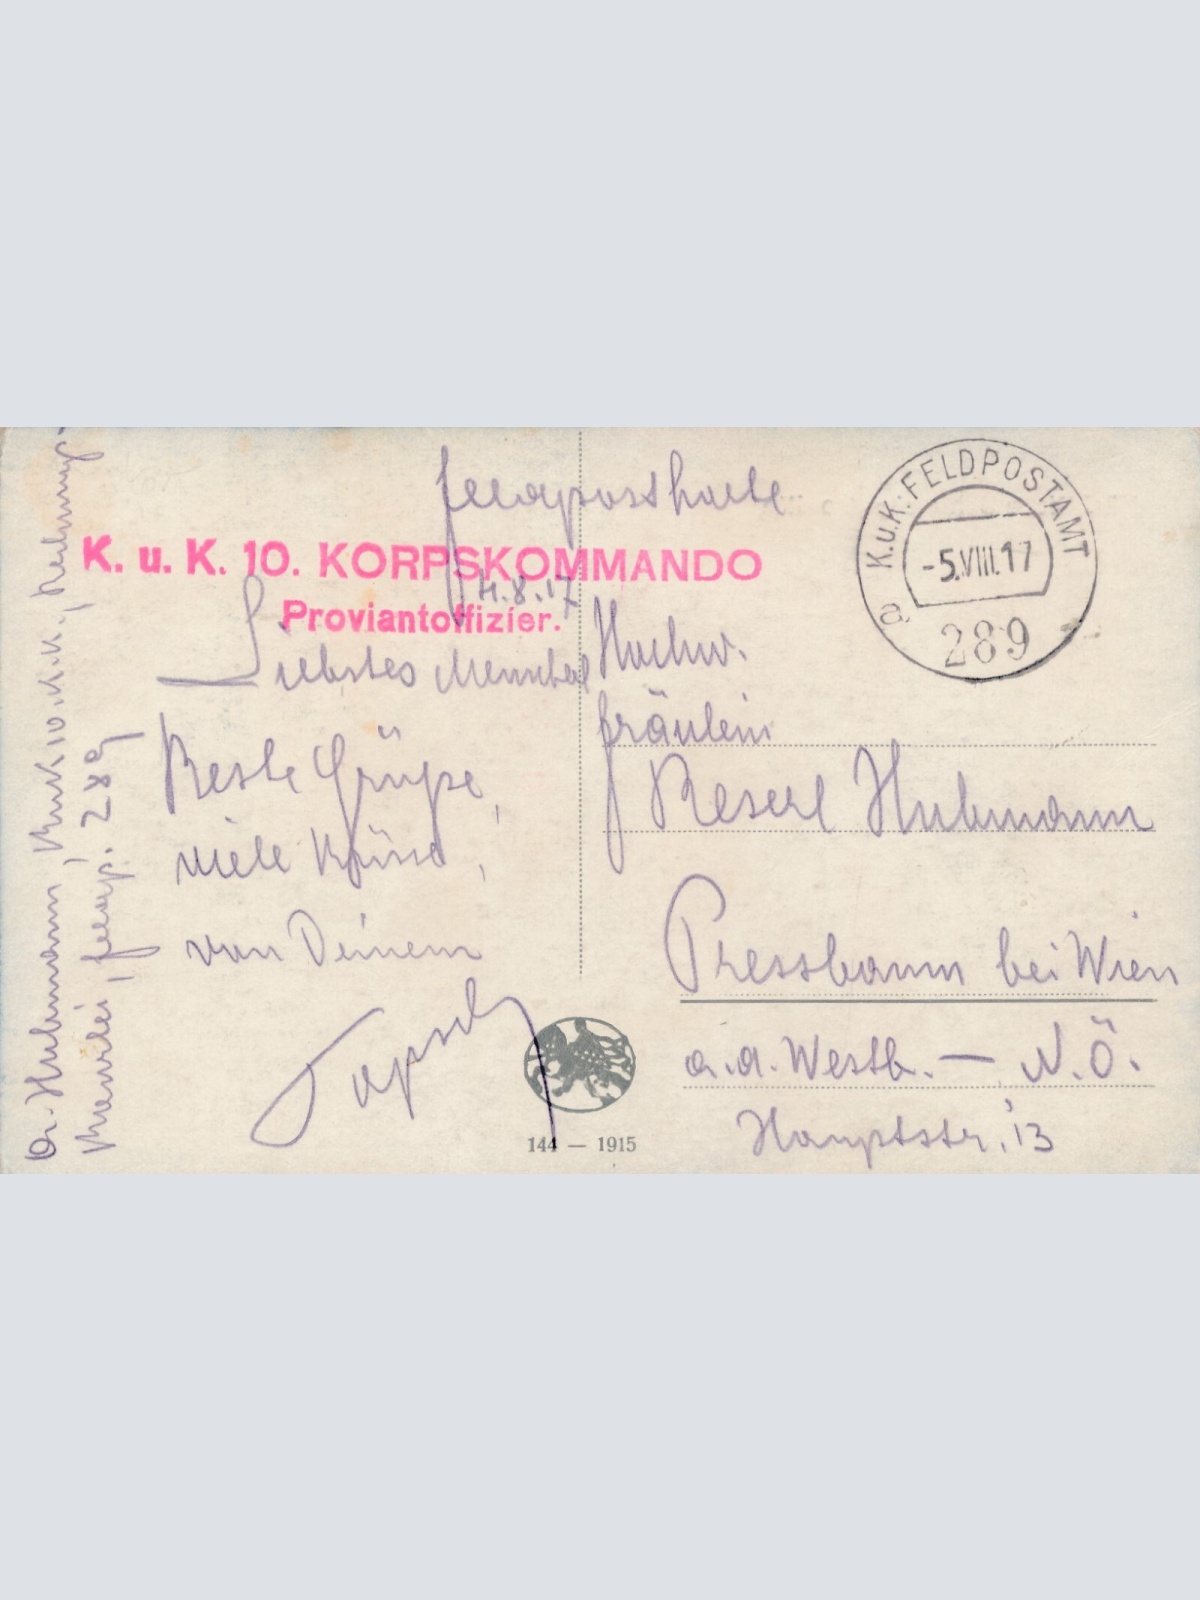 Feldpostkarte
K. u. K. 10. KORPSKOMMANDO
Proviantoffizier.
4.8.17
Liebstes Menscherl
Beste Grüße,
viele Küsse,
von Deinem
K.u.K. FELDPOSTAMT
-5.VIII.17
a 289
Hochw.
Fräulein
Reserl Huhmann
Pressbaum bei Wien
a.d. Westb. — N.Ö.
Hauptstr. 13
144 — 1915
Dr. Huhmann, K.u.K. 10. K.K.,
Kanzlei, Feldp. 289